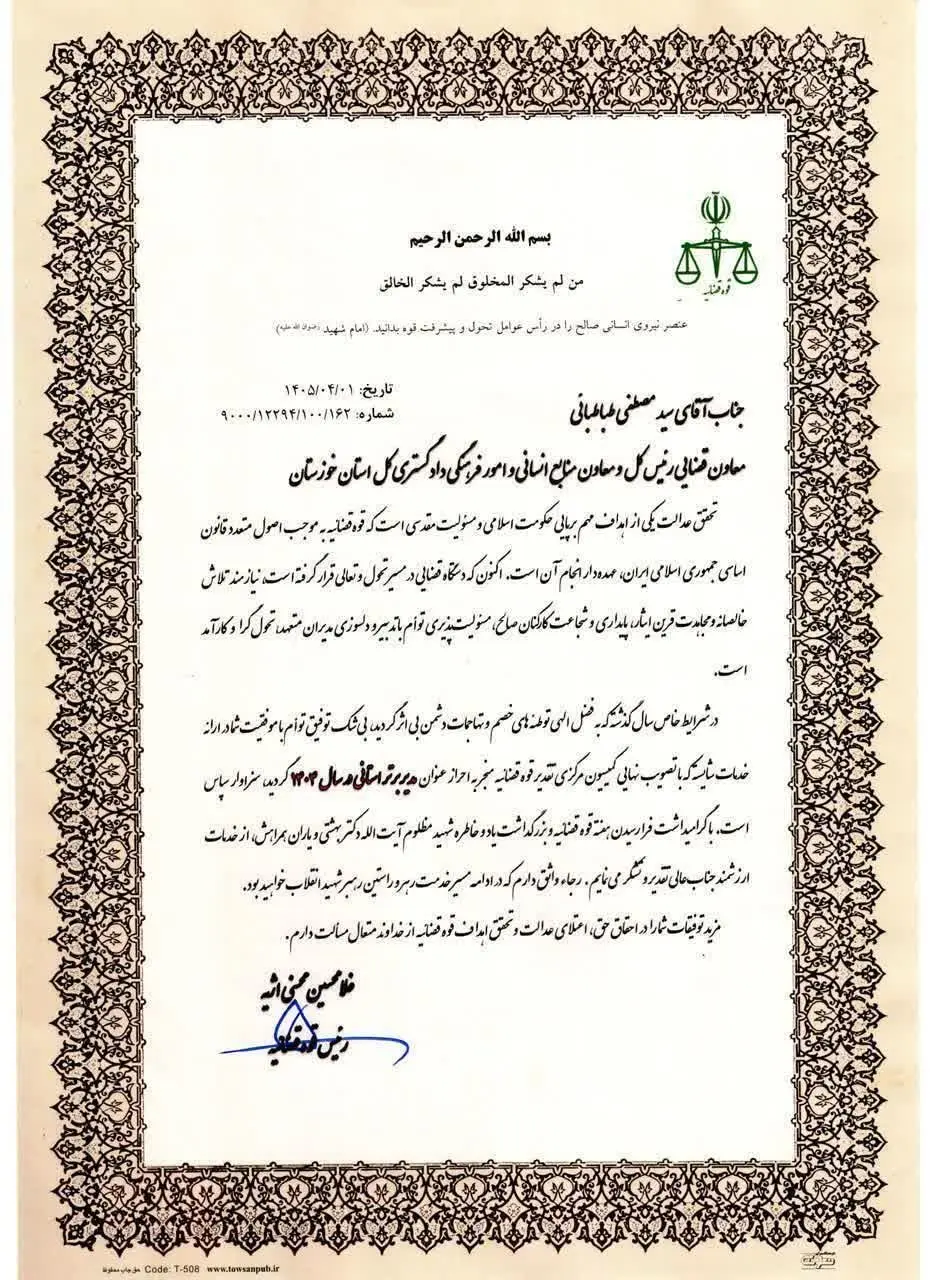 قوه قضائیه
بسم الله الرحمن الرحیم
من لم یشکر المخلوق لم یشکر الخالق
عنصر نیروی انسانی صالح را در رأس عوامل تحول و پیشرفت قوه بدانید. (امام شهید رضوان الله علیه)
تاریخ: ۱۴۰۵/۰۴/۰۱
شماره: ۹۰۰۰/۱۲۲۹۴/۱۰۰/۱۶۲
جناب آقای سید مصطفی طباطبائی
معاون قضایی رئیس کل و معاون منابع انسانی و امور فرهنگی دادگستری کل استان خوزستان
تحقق عدالت یکی از اهداف مهم برپایی حکومت اسلامی و مسئولیت مقدسی است که قوه قضائیه به موجب اصول متعدد قانون
اساسی جمهوری اسلامی ایران، عهده‌دار انجام آن است. اکنون که دستگاه قضایی در مسیر تحول و تعالی قرار گرفته است، نیازمند تلاش
خالصانه و مجاهدت قرین ایثار، پایداری و شجاعت کارکنان صالح، مسئولیت‌پذیری توأم با تدبیر و دلسوزی مدیران متعهد، تحول گرا و کارآمد
است.
در شرایط خاص سال گذشته که به فضل الهی توطئه های خصم و تهاجمات دشمن بی اثر گردید، بی شک توفیق توأم با موفقیت شما در ارائه
خدمات شایسته که با تصویب نهایی کمیسیون مرکزی تقدیر قوه قضائیه منجر به احراز عنوان مدیر برتر استانی در سال ۱۴۰۴ گردید، سزاوار سپاس
است. با گرامیداشت فرارسیدن هفته قوه قضائیه و بزرگداشت یاد و خاطره شهید مظلوم آیت الله دکتر بهشتی و یاران همراهش، از خدمات
ارزشمند جناب عالی تقدیر و تشکر می نمایم. رجاء واثق دارم که در ادامه مسیر خدمت رهرو راستین رهبر شهید انقلاب خواهید بود.
مزید توفیقات شما را در احقاق حق، اعتلای عدالت و تحقق اهداف قوه قضائیه از خداوند متعال مسألت دارم.
غلامحسین محسنی اژه‌ای
رئیس قوه قضائیه
حق چاپ محفوظ Code: T-508 www.towsanpub.ir